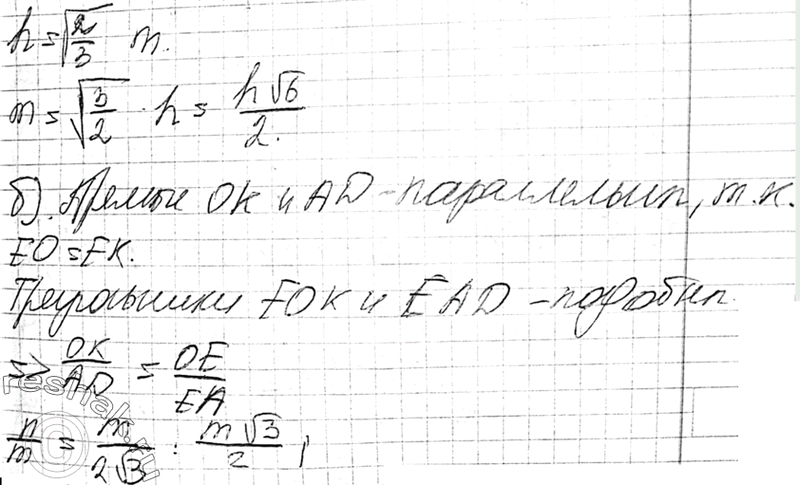 h = √(2/3) m.
m = √(3/2) · h = h√6/2.
б). Прямые OK и AD - параллельны, т.к.
EO = EK.
Треугольники EOK и EAD - подобны
=> OK/AD = OE/EA
n/m = m/2√3 : m√3/2 ;
reshak.ru